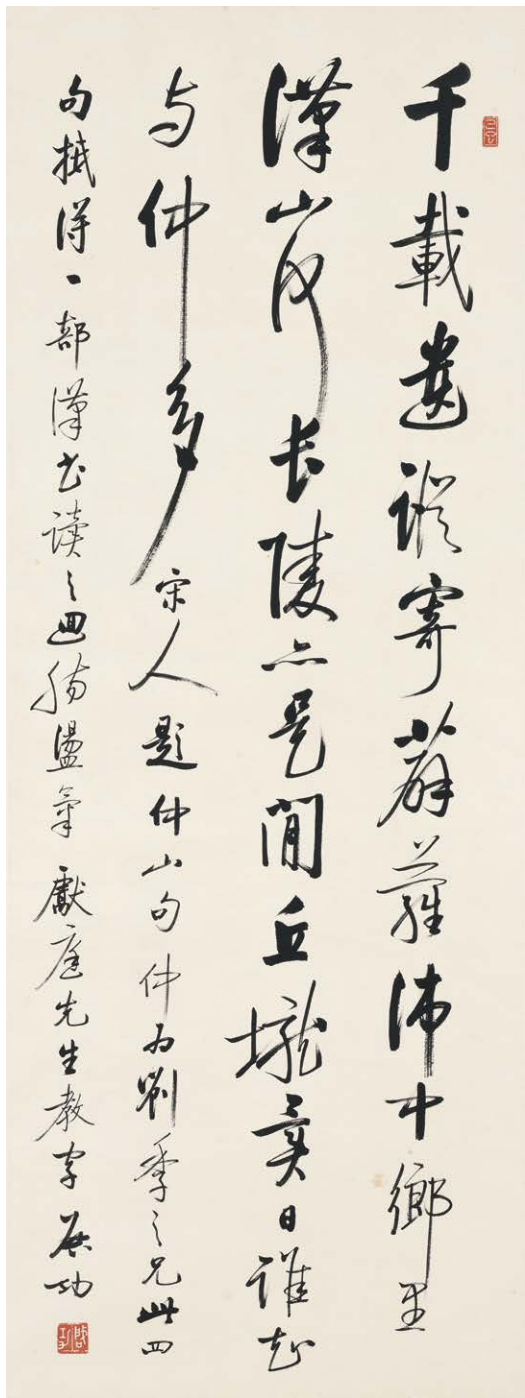 千載遺蹤寄薜蘿沛中鄉里
漢山河長陵亦是閒丘壠異日誰知
与仲多宋人題仲山句仲为劉季之兄此四
句抵得一部漢书读之迴腸盪氣獻庭先生教字启功